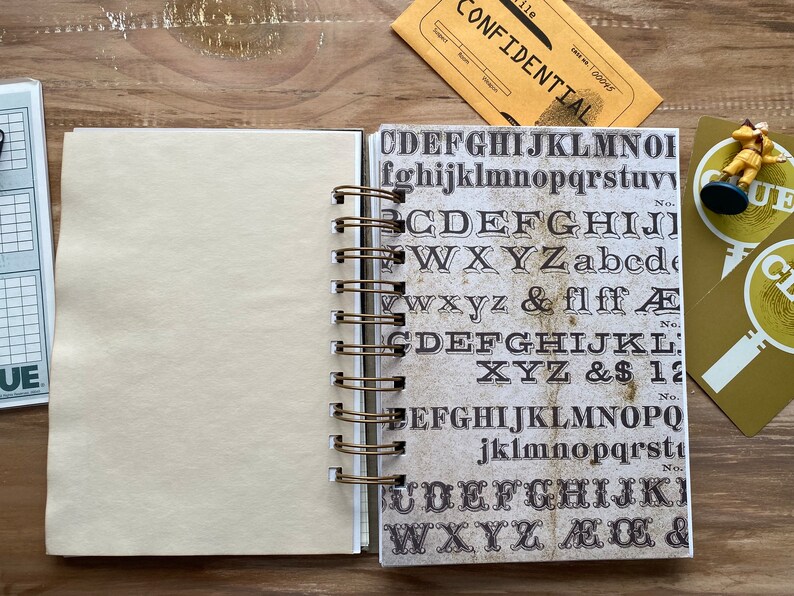 file
CONFIDENTIAL
CASE NO. 00045
Suspect
Room
Weapon
CDEFGHIJKLMNOP
fghijklmnopqrstuvv
No.
PCDEFGHIJKL
WXYZabcde
No.
vwxyz & flff Æ
No.
CDEFGHIJKL
XYZ &$ 12
No.
DEFGHIJKLMNOPQ
jklmnopqrstu
No.
BUDEFGHIJKL
WXYZ ÆŒ &
CLUE
CLUE
UE